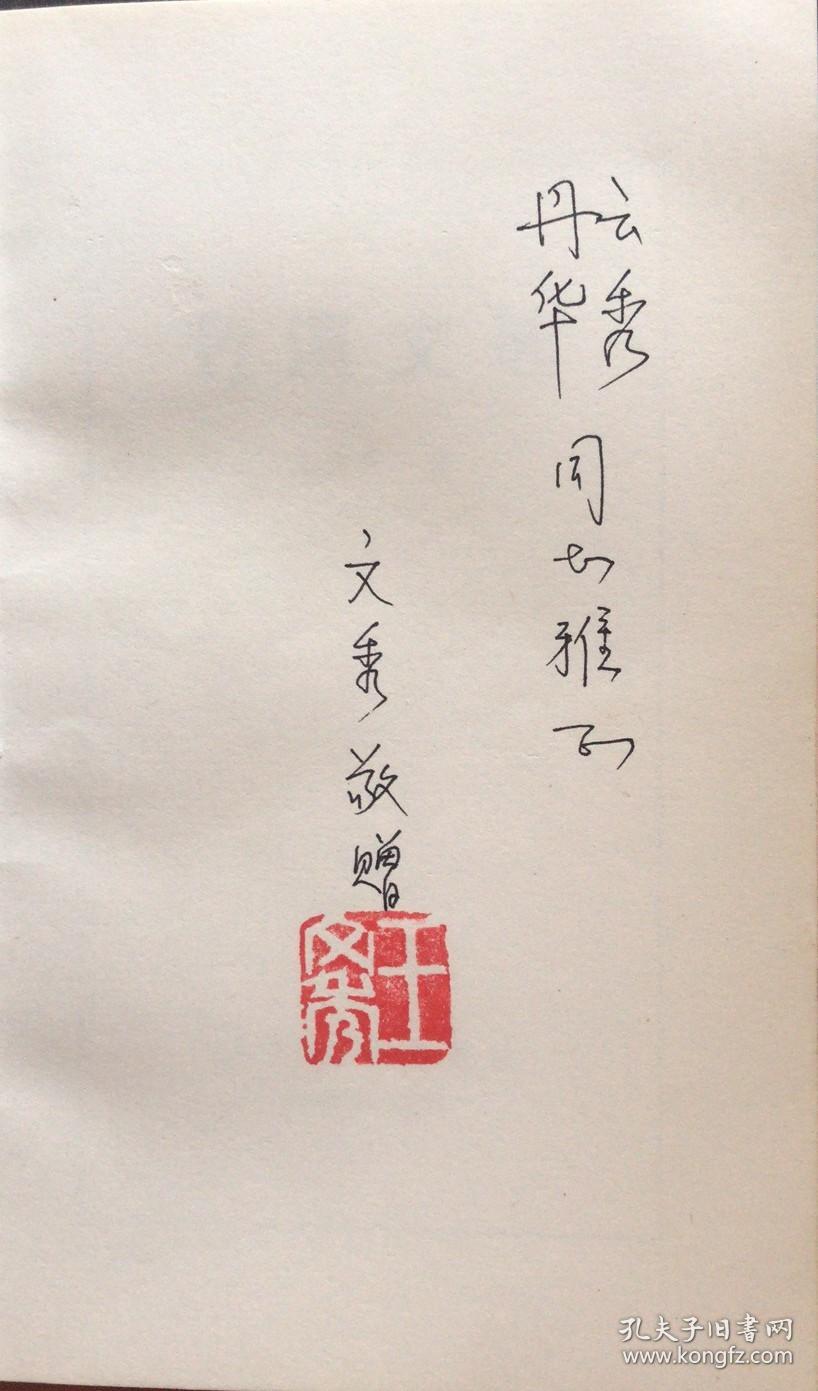 云秀
丹华
同志雅正
文秀敬赠
王文秀
孔夫子旧書网
www.kongfz.com